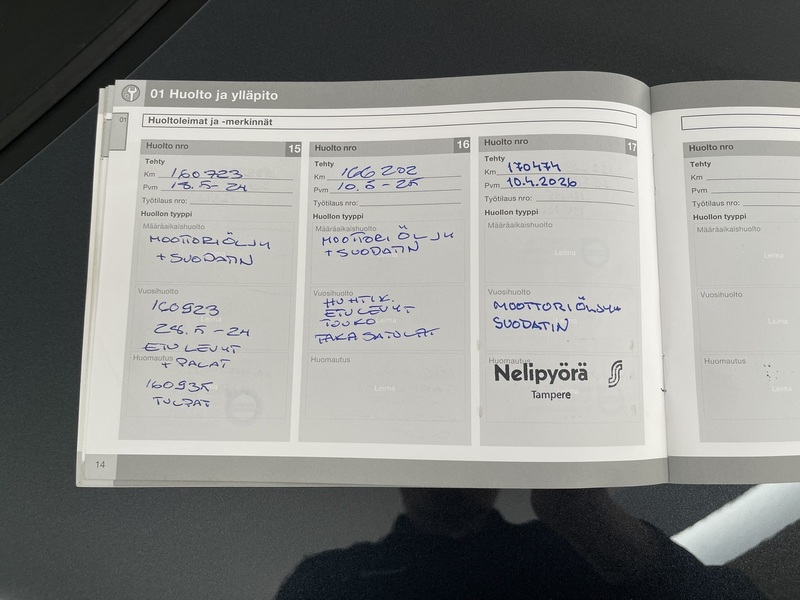 01 Huolto ja ylläpito
01
Huoltoleimat ja -merkinnät
Huolto nro 15
Tehty
Km 160723
Pvm 18.5-24
Työtilaus nro:
Huollon tyyppi
Määräaikaishuolto
MOOTTORIÖLJY
+ SUODATIN
Vuosihuolto
160923
28.5-24
ETULEVYT
Huomautus
+ PALAT
160935
TULPAT
Huolto nro 16
Tehty
Km 166202
Pvm 10.5-25
Työtilaus nro:
Huollon tyyppi
Määräaikaishuolto
MOOTTORI ÖLJY
+ SUODATIN
Vuosihuolto
HUHTIK.
ETULEVYT
TOUKO
TAKASATULAT
Huomautus
Leima
Huolto nro 17
Tehty
Km 170474
Pvm 10.4.2026
Työtilaus nro:
Huollon tyyppi
Määräaikaishuolto
Leima
Vuosihuolto
MOOTTORIÖLJY+
SUODATIN
Huomautus
Nelipyörä
Tampere
14
Huolto nro
Tehty
Km
Pvm
Työtilaus nro:
Huollon tyyppi
Määräaikaishuolto
Leima
Vuosihuolto
Leima
Huomautus
Leima